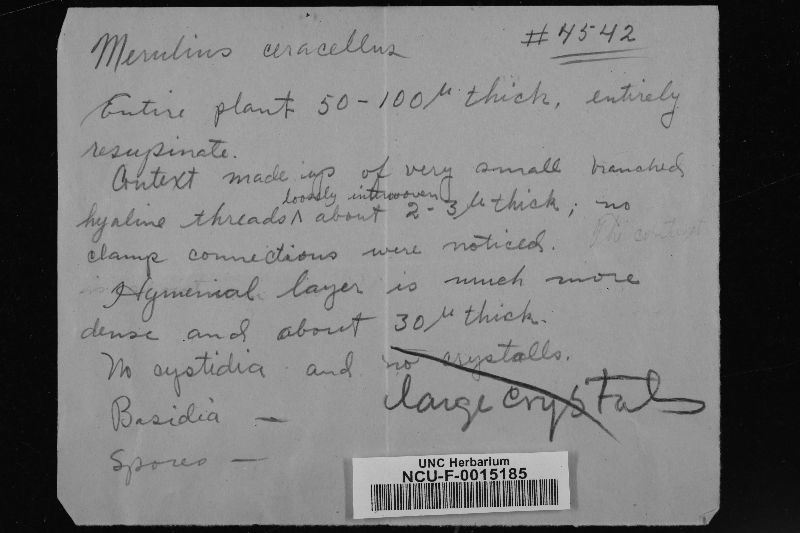 Merulius ceracellus
#4542
Entire plant 50-100µ thick, entirely
resupinate.
Context made up of very small branched
loosely interwoven
hyaline threads ^ about 2-3µ thick; no
clamp connections were noticed. The context
Hymenial layer is much more
dense and about 30µ thick.
No cystidia and no crystalls.
large crystals
Basidia —
Spores —
UNC Herbarium
NCU-F-0015185